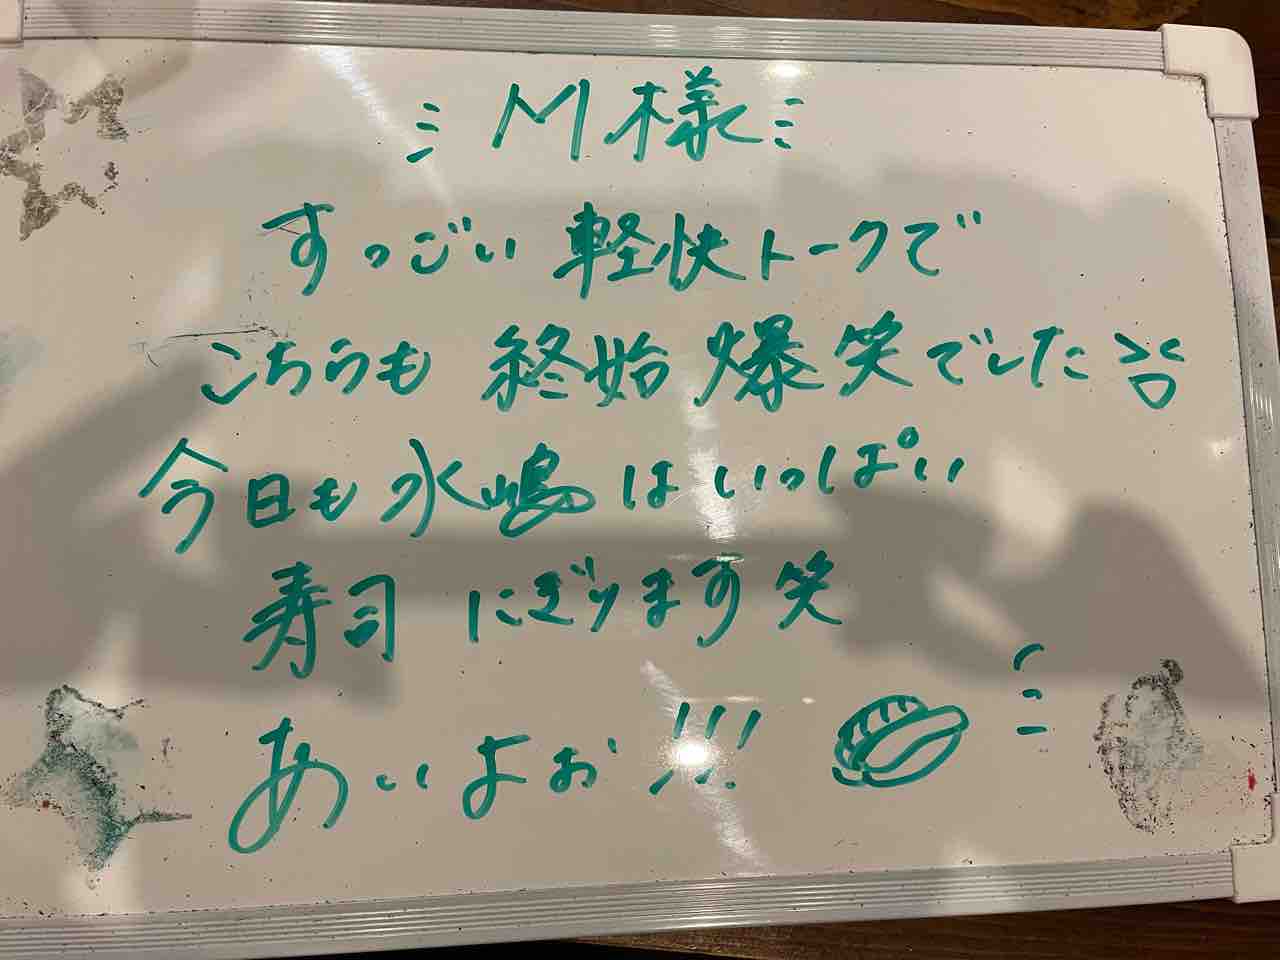 M様
すっごい軽快トークで
こちらも終始爆笑でした
今日も水嶋はいっぱい
寿司にぎります笑
あいよぉ!!!